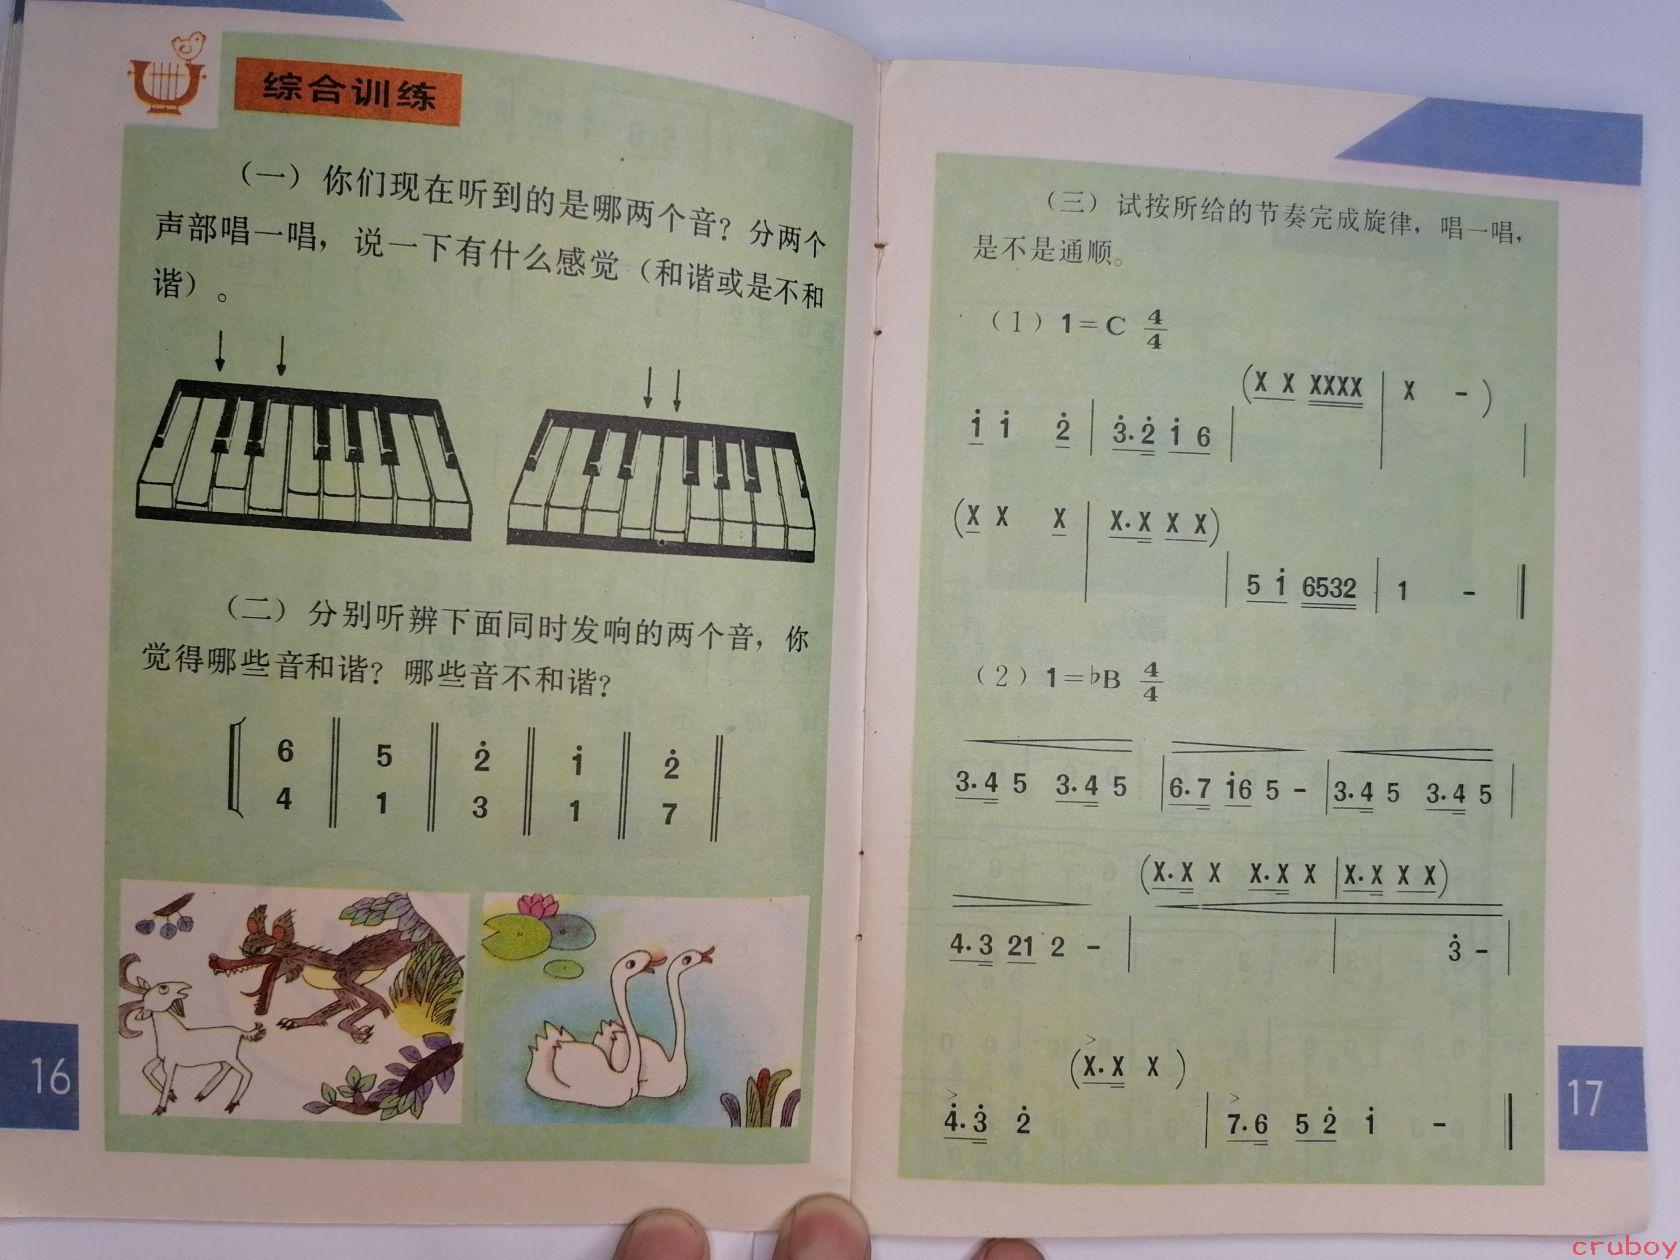 综合训练
（一）你们现在听到的是哪两个音？分两个
声部唱一唱，说一下有什么感觉（和谐或是不和
谐）。
（二）分别听辨下面同时发响的两个音，你
觉得哪些音和谐？哪些音不和谐？
6 ‖ 5 ‖ 2̇ ‖ 1̇ ‖ 2̇ ‖
4 ‖ 1 ‖ 3 ‖ 1 ‖ 7 ‖
16
（三）试按所给的节奏完成旋律，唱一唱，
是不是通顺。
（1）1=C 4/4
(X X XXXX | X - )
1̇ 1̇ 2̇ | 3̇. 2̇ 1̇ 6 |
(X X X | X. X X X)
| 5 1̇ 6532 | 1 - ‖
（2）1=♭B 4/4
3. 4 5 3. 4 5 | 6. 7 1̇6 5 - | 3. 4 5 3. 4 5 |
(X. X X X. X X | X. X X X)
4. 3 21 2 - | | 3̇ - |
(X. X X )
4̇. 3̇ 2̇ | 7. 6 5 2̇ 1̇ - ‖
17
cruboy